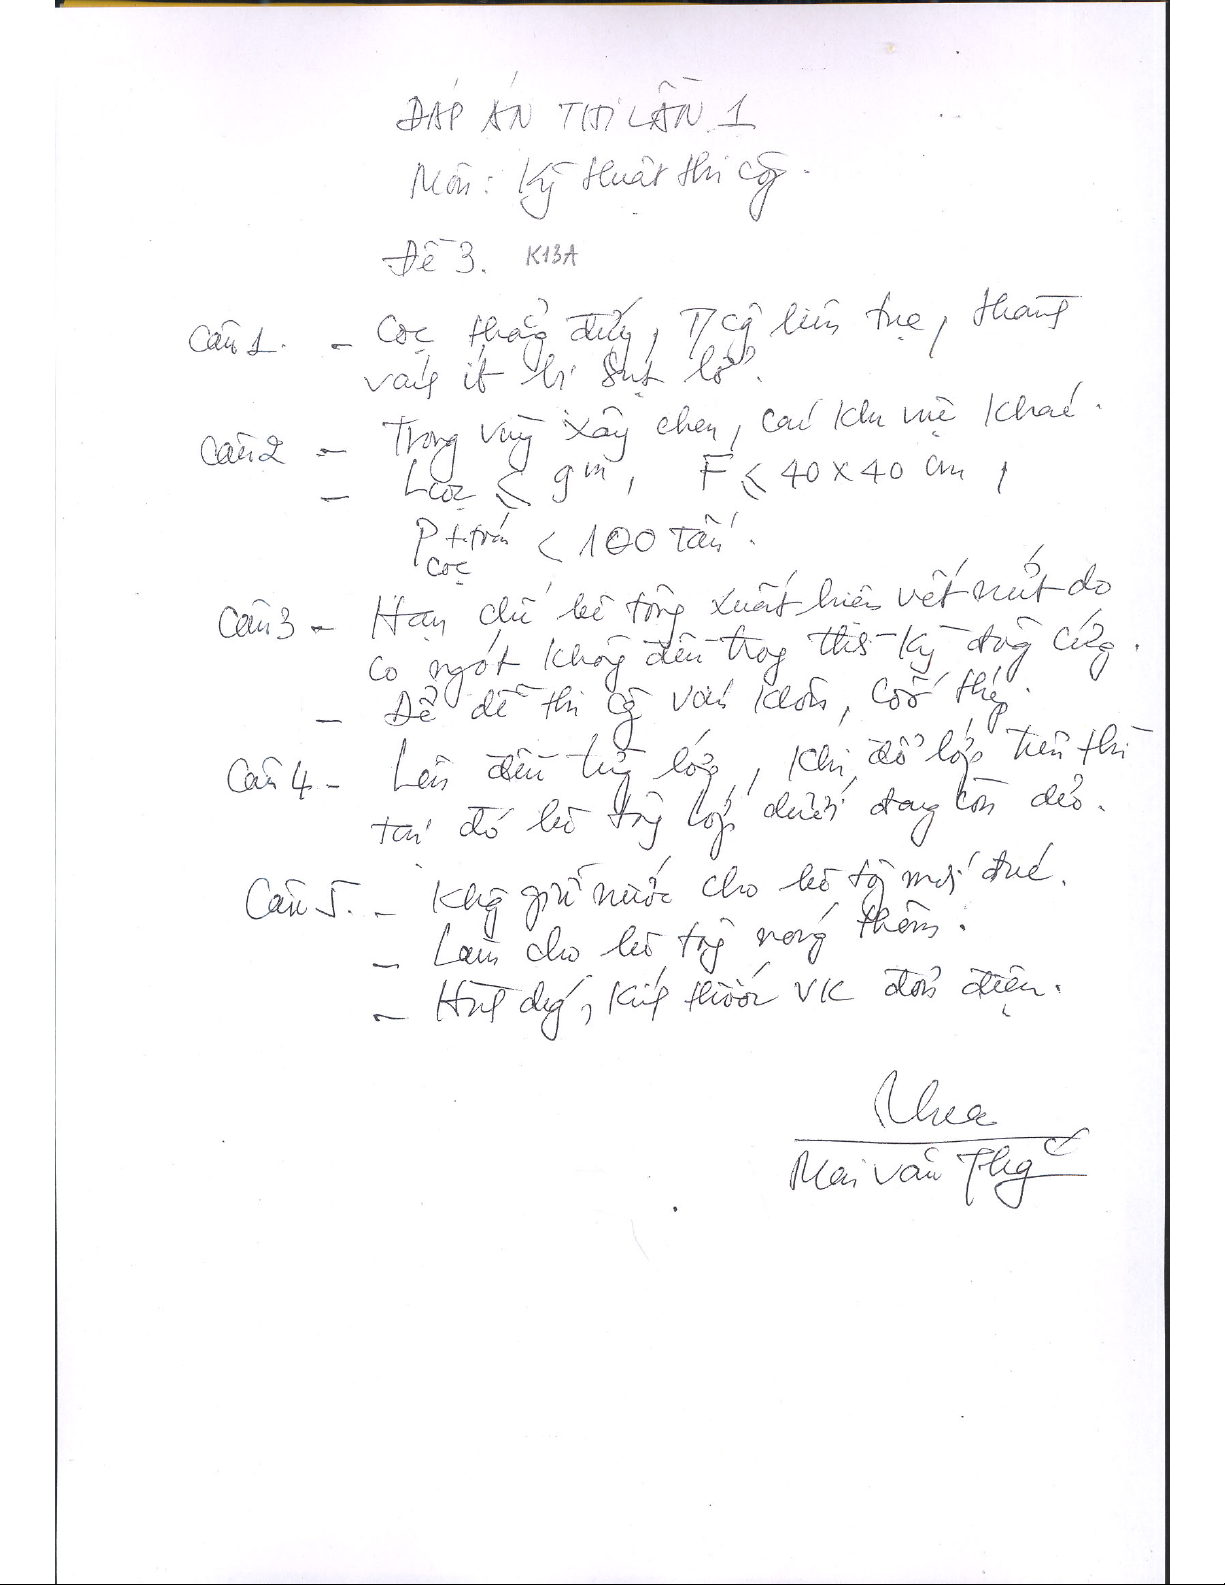 ĐÁP ÁN THI LẦN 1
Môn: Kỹ thuật thi công.
Đề 3. K13A
Câu 1. - Cọc thẳng đứng, T/công liên tục, thành
vách ít bị sụt lở.
Câu 2 - Trong vùng xây chen, các khu vực khác.
- Lcọc ⩽ 9m, F ⩽ 40 x 40 cm,
P t.toán cọc < 100 tấn.
Câu 3 - Hạn chế bê tông xuất hiện vết nứt do
co ngót không đều trong thời kỳ đông cứng.
- Để dễ thi công ván khuôn, cốt thép.
Câu 4 - Lên đều từng lớp, khi đổ lớp trên thì
tại đó bê tông lớp dưới đang còn dẻo.
Câu 5. - Không giữ nước cho bê tông mới đúc.
- Làm cho bê tông nóng thêm.
- Hình dáng, kích thước VK đơn điệu.
Mai Văn